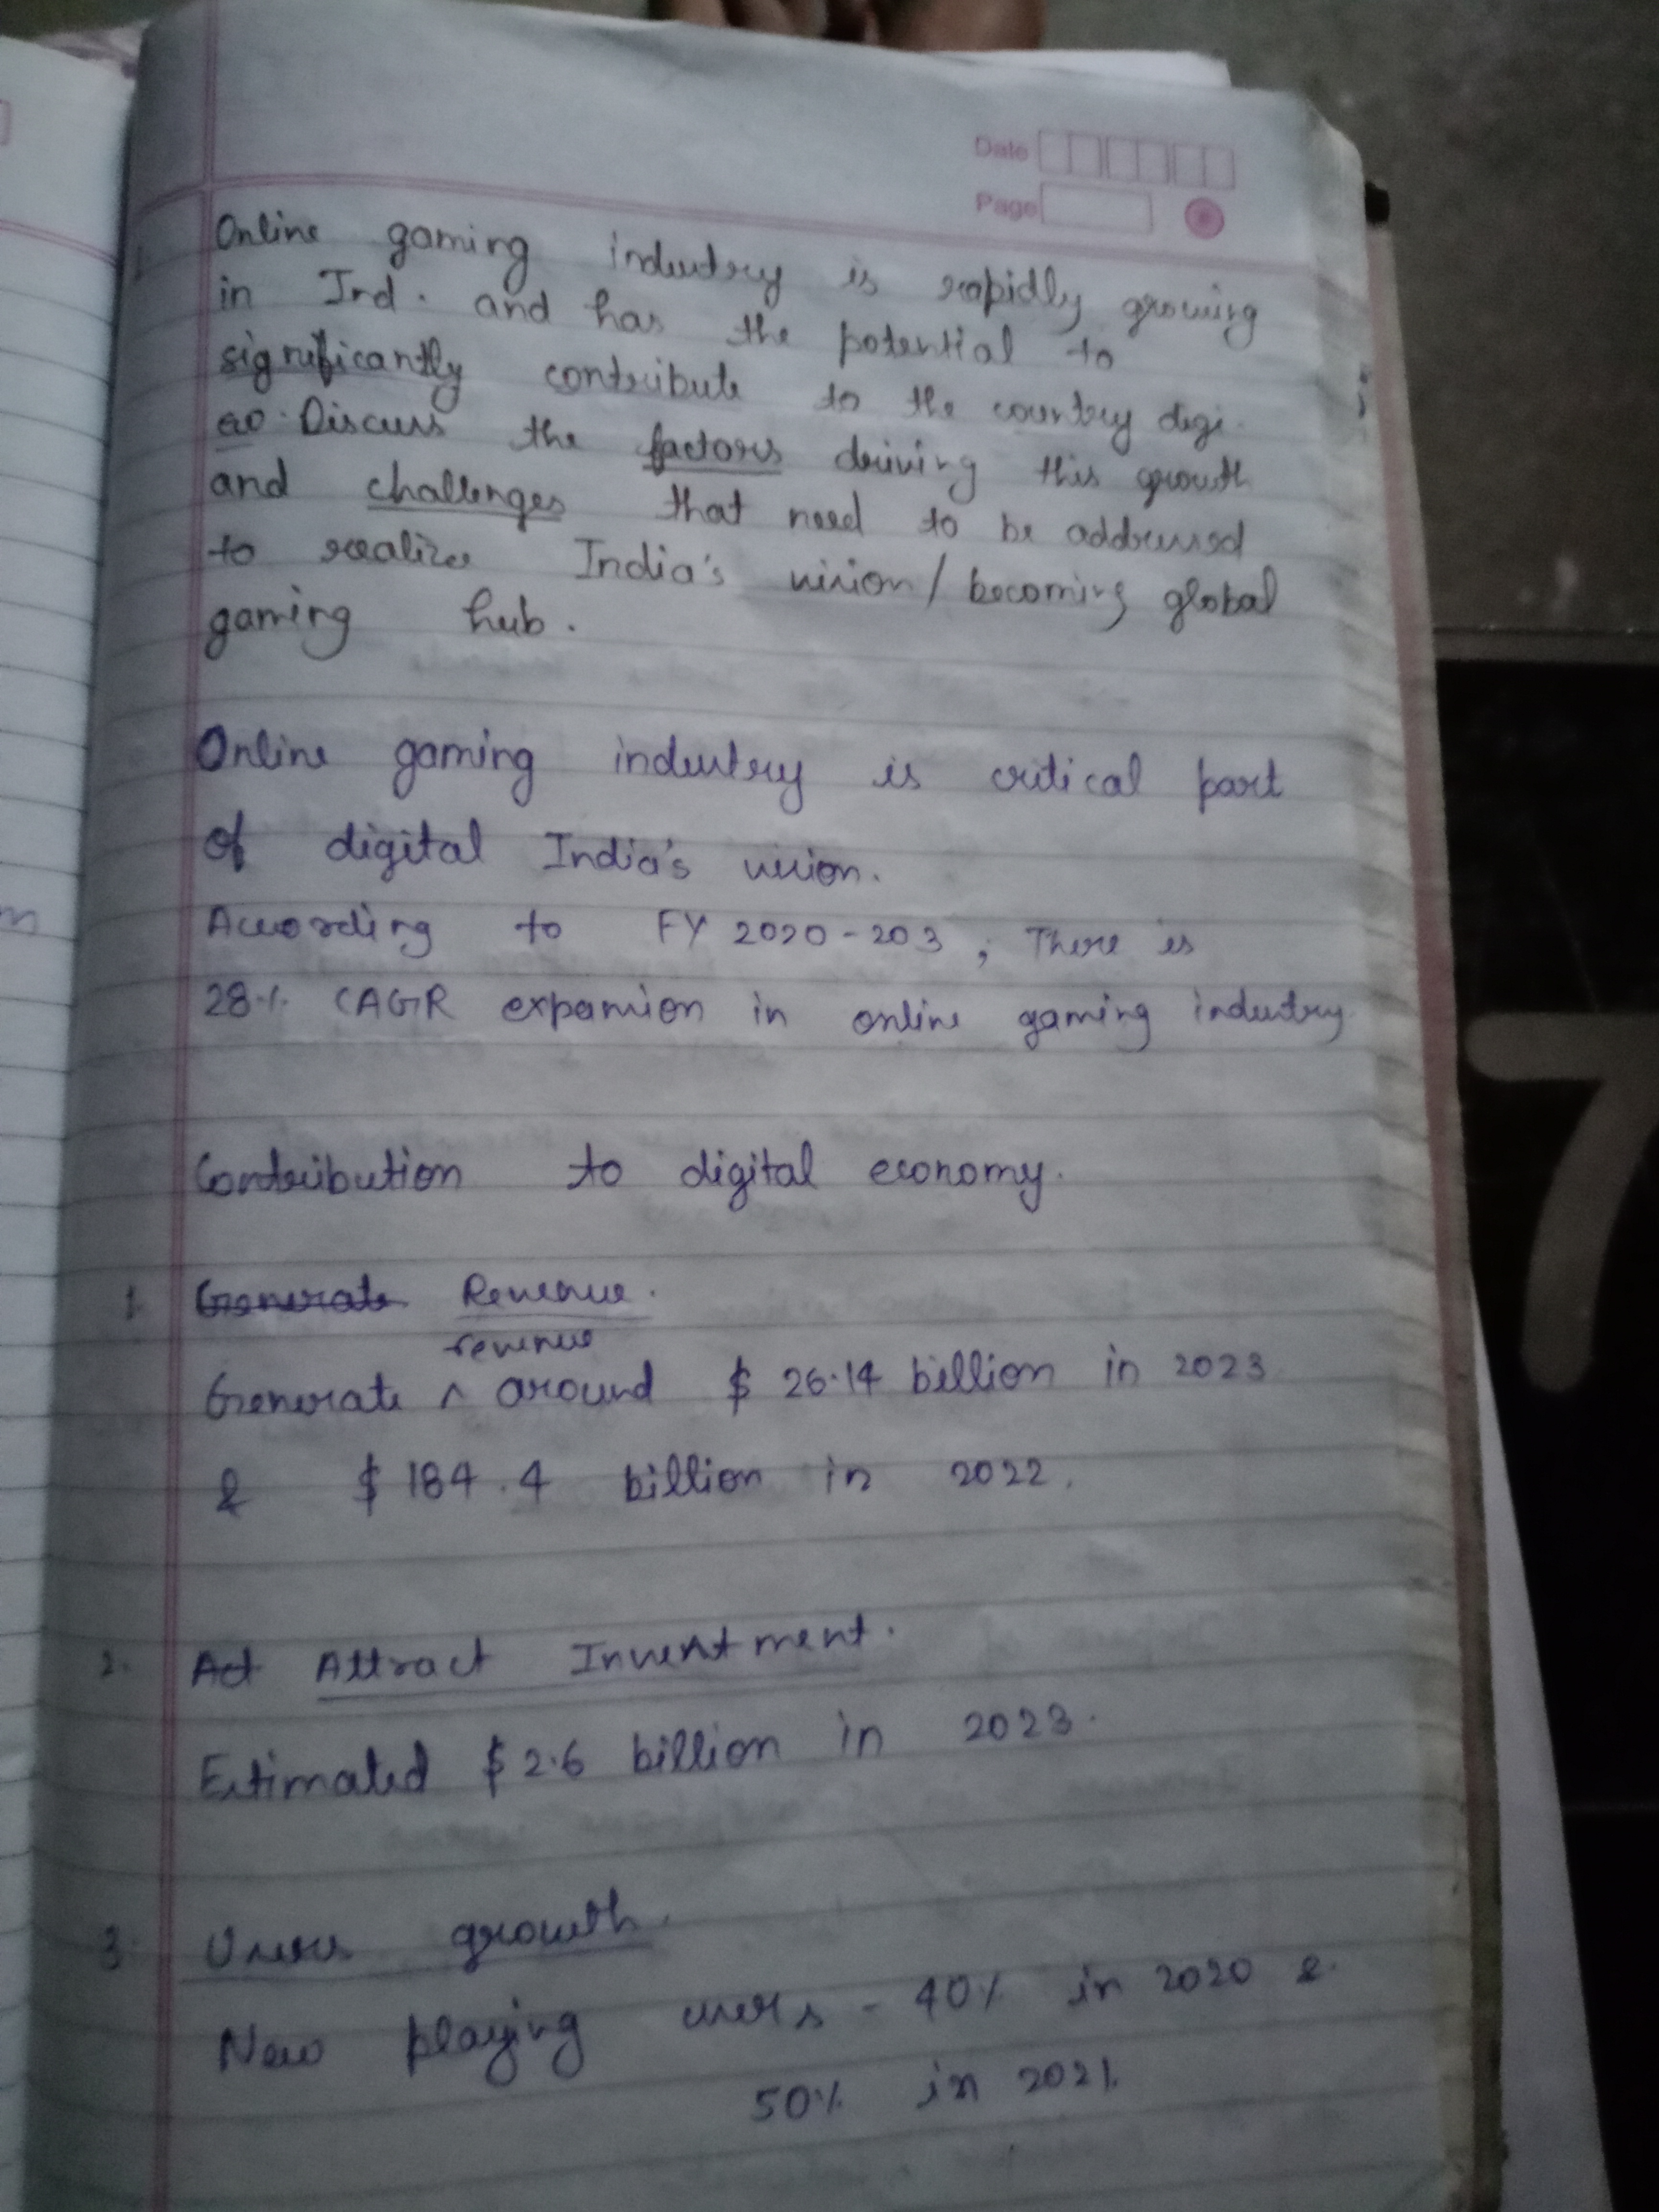 Date
Page
1. Online gaming industry is rapidly growing
in Ind. and has the potential to
significantly contribute to the country digi.
eco. Discuss the factors driving this growth
and challenges that need to be addressed
to realize India's vision / becoming global
gaming hub.
Online gaming industry is critical part
of digital India's vision.
According to FY 2020-203, There is
28% CAGR expansion in online gaming industry
Contribution to digital economy.
1. Generate Revenue.
revenue
Generate ^ around $ 26.14 billion in 2023
& $ 184.4 billion in 2022.
2. Act Attract Investment.
Estimated $ 2.6 billion in 2023.
3. Users growth.
New playing users - 40% in 2020 &
50% in 2021.
7